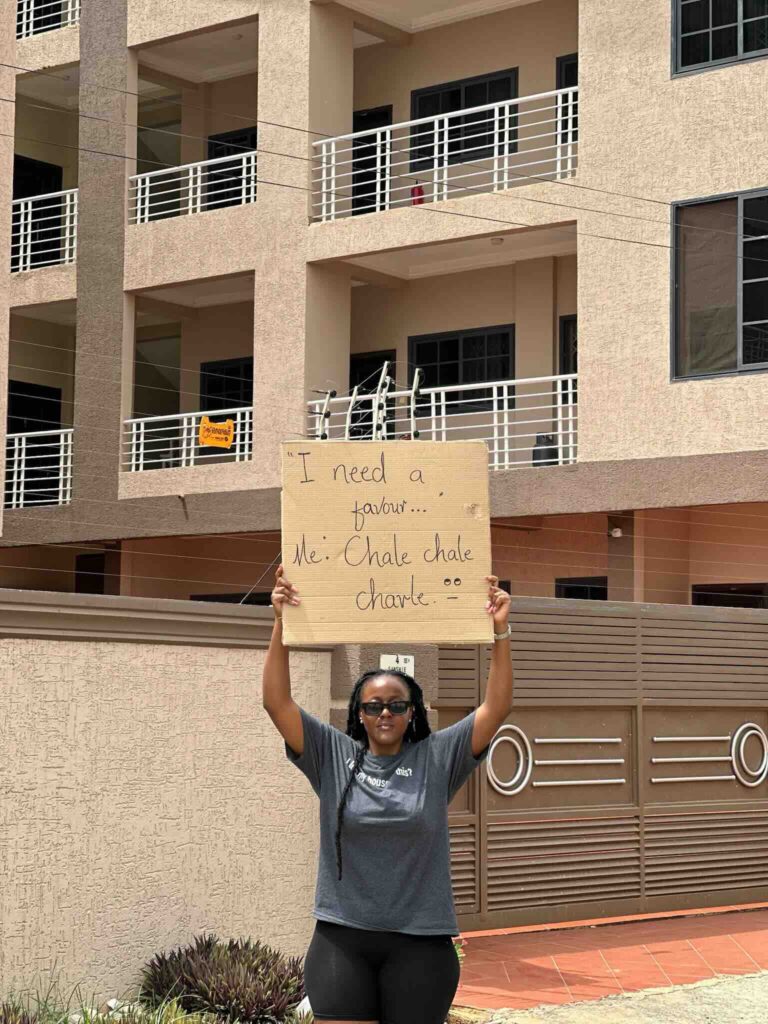 "I need a
favour..."
Me: Chale chale
charle.
4